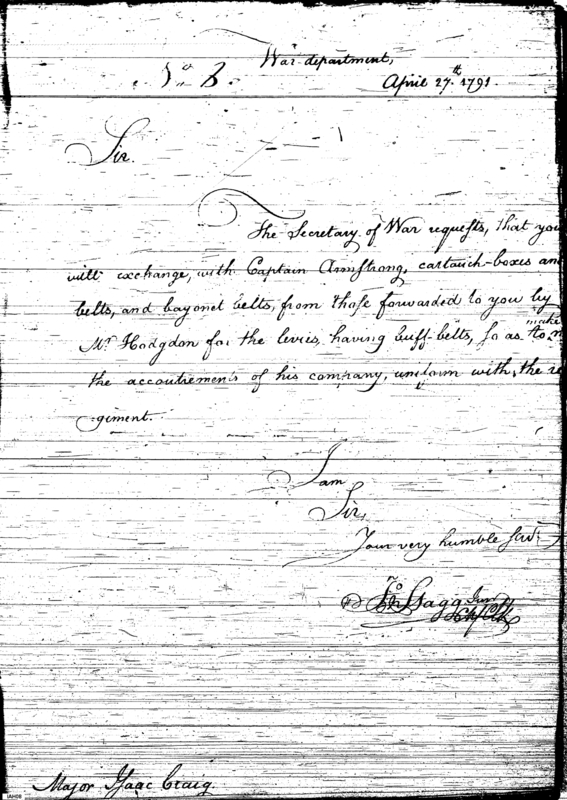 War department,
No. 8. April 27th. 1791.
Sir.
The Secretary of War requests, that you
will exchange, with Captain Armstrong, cartouch-boxes an
belts, and bayonet belts, from those forwarded to you by
Mr. Hodgdon for the levies, having buff-belts, so as to
make
the accoutrements of his company, uniform with, the re
giment.
I am
Sir,
Your very humble Servt.
Jno Stagg Junr
Chf Clk
Major Isaac Craig.